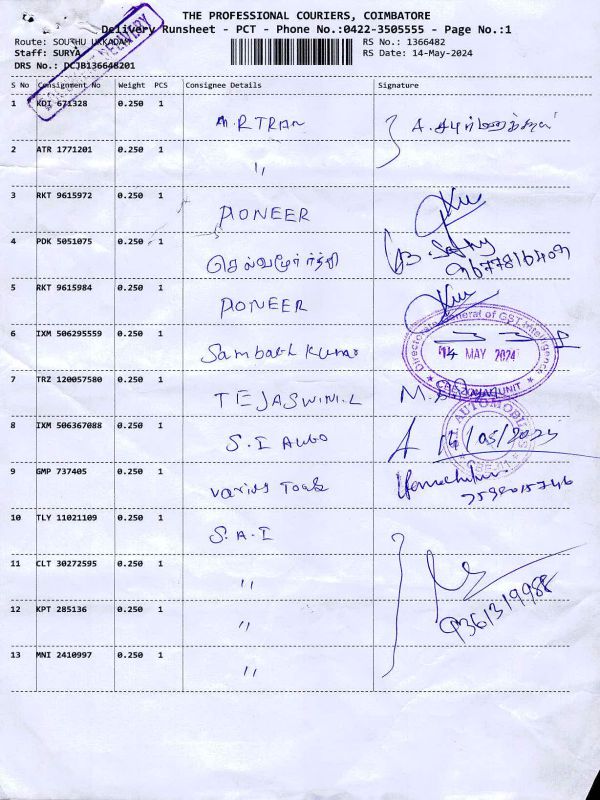 THE PROFESSIONAL COURIERS, COIMBATORE
Delivery Runsheet - PCT - Phone No.:0422-3505555 - Page No.:1
Route: SOUTHU UKKADAM
RS No.: 1366482
Staff: SURYA
RS Date: 14-May-2024
DRS No.: DCJB136648201
DELIVERY
S No Consignment No Weight PCS Consignee Details Signature
1 KDI 671328 0.250 1 M.R TRAN
2 ATR 1771201 0.250 1 "
3 RKT 9615972 0.250 1 PIONEER
4 PDK 5051075 0.250 1 செல்வமூர்த்தி
5 RKT 9615984 0.250 1 PIONEER
6 IXM 506295559 0.250 1 Sambath Kumar
Directorate General of GST Intelligence
14 MAY 2024
UNIT
7 TRZ 120057580 0.250 1 TEJASWINI.L
8 IXM 506367088 0.250 1 S.I Auto
AUTOMOBILES
14/05/2024
9 GMP 737405 0.250 1 Varius Tools
10 TLY 11021109 0.250 1 S.A.I
11 CLT 30272595 0.250 1 "
9361319988
12 KPT 285136 0.250 1 "
13 MNI 2410997 0.250 1 "